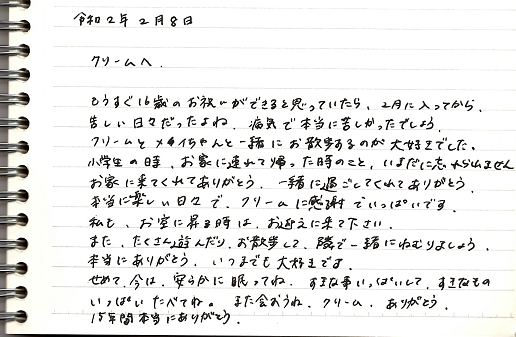 令和2年2月8日
クリームへ.
もうすぐ16歳のお祝いができると思っていたら、2月に入ってから、
苦しい日々だったよね. 病気で本当に苦しかったでしょう.
クリームとメイちゃんと一緒にお散歩するのが大好きでした.
小学生の時、お家に連れて帰った時のこと、いまだに忘れられません
お家に来てくれてありがとう. 一緒に過ごしてくれてありがとう.
本当に楽しい日々で、クリームに感謝でいっぱいです.
私も、お空に昇る時は、お迎えに来て下さい.
また、たくさん遊んだり、お散歩して、隣で一緒にねむりましょう.
本当にありがとう. いつまでも大好きです.
せめて、今は、安らかに眠ってね. すきな事いっぱいして、すきなもの
いっぱいたべてね. また会おうね. クリーム. ありがとう.
15年間本当にありがとう.